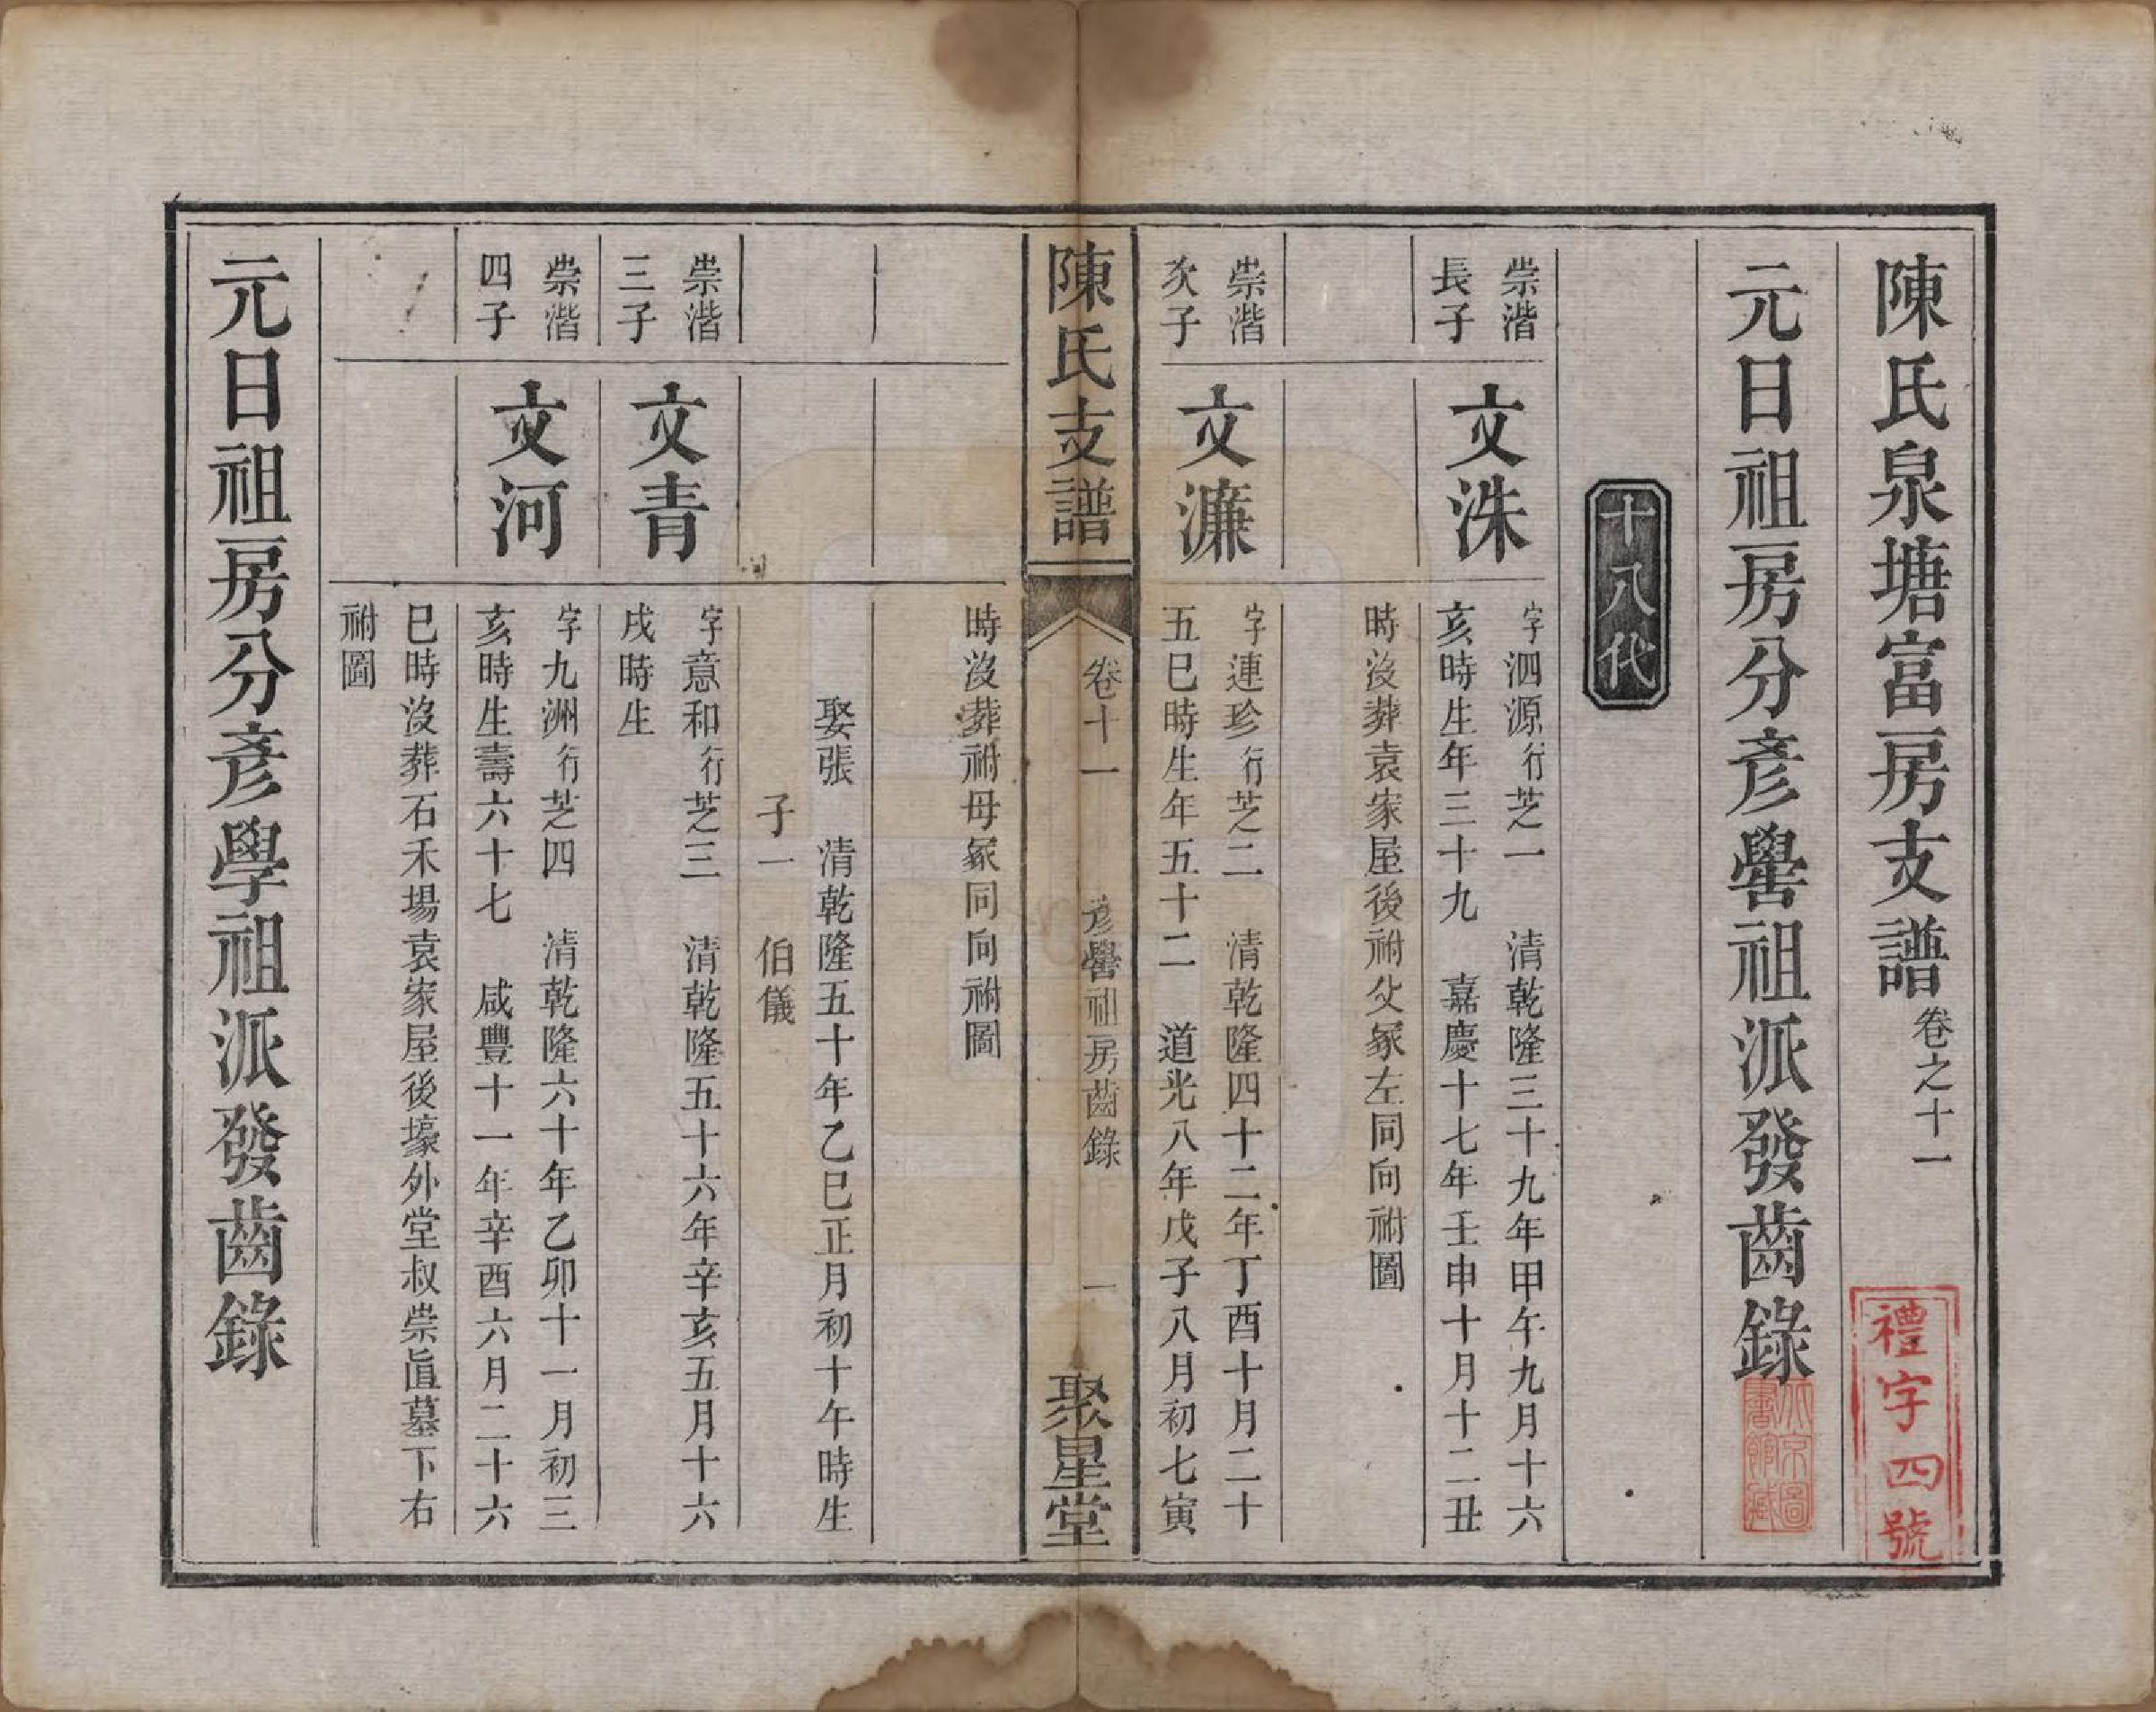 陳氏泉塘富房支譜卷之十一
禮字四號
元日祖房分彥嚳祖派發齒錄
北京圖書館藏
十八代
崇湝
長子
文洙
字泗源行芝一 清乾隆三十九年甲午九月十六
亥時生年三十九 嘉慶十七年壬申十月十二丑
時沒葬袁家屋後祔父冢左同向祔圖
崇湝
次子
文濂
字連珍行芝二 清乾隆四十二年丁酉十月二十
五巳時生年五十二 道光八年戊子八月初七寅
陳氏支譜
卷十一
彥嚳祖房齒錄
一
聚星堂
時沒葬祔母冢同向祔圖
娶張 清乾隆五十年乙巳正月初十午時生
子一 伯儀
崇湝
三子
文青
字意和行芝三 清乾隆五十六年辛亥五月十六
戌時生
崇湝
四子
文河
字九洲行芝四 清乾隆六十年乙卯十一月初三
亥時生壽六十七 咸豐十一年辛酉六月二十六
巳時沒葬石禾場袁家屋後壕外堂叔崇眞墓下右
祔圖
元日祖房分彥學祖派發齒錄